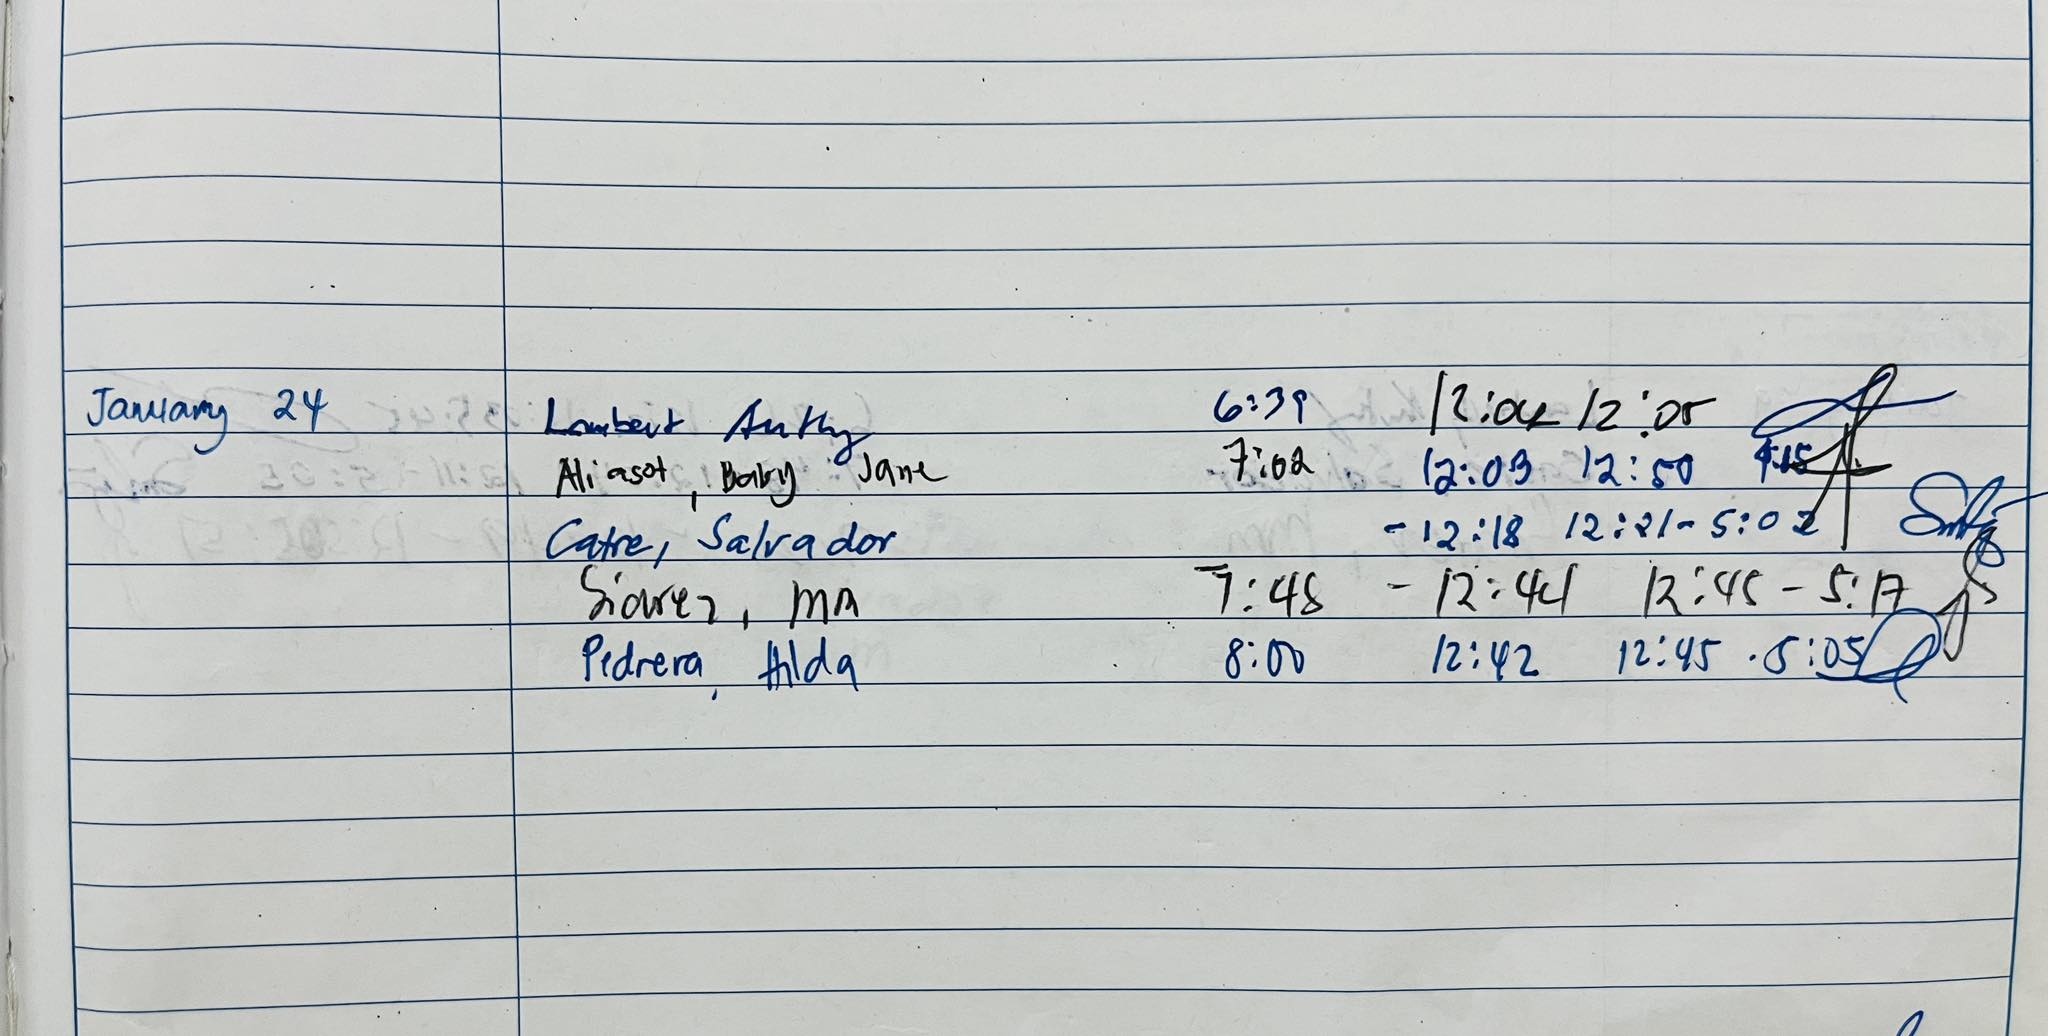 January 24 Lambert Anthy 6:39 12:04 12:05
Aliasot, Baby Jane 7:02 12:03 12:50
Catre, Salvador - 12:18 12:21 - 5:02
MA 7:48 - 12:44 12:45 - 5:17
Pedrera, Hilda 8:00 12:42 12:45 . 5:05